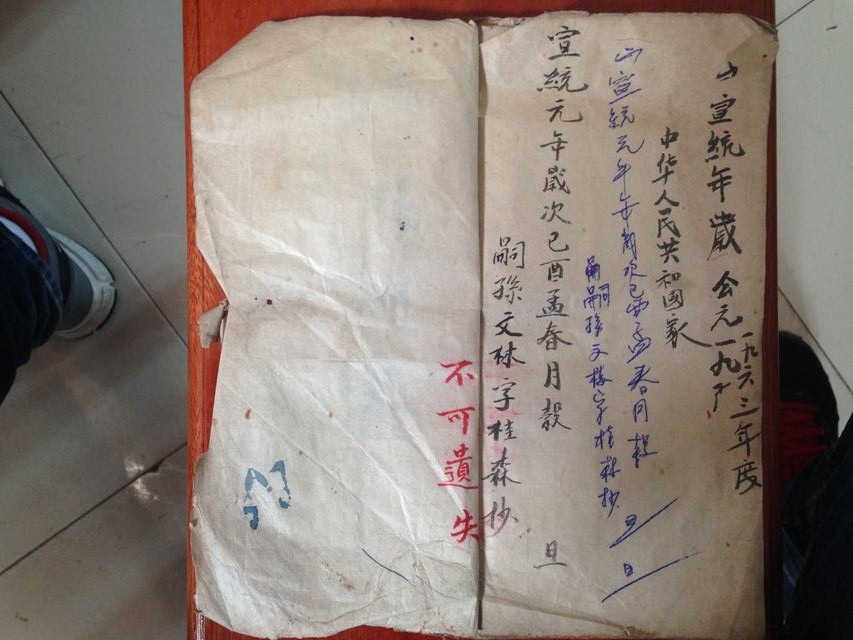 山宣統年歲 公元一九
一九六三年度
中华人民共和國家
山宣統元年 歲次己酉孟春月穀旦
嗣孫文林字桂森抄
宣統元年歲次己酉孟春月穀旦
嗣孫文林字桂森抄
不可遺失